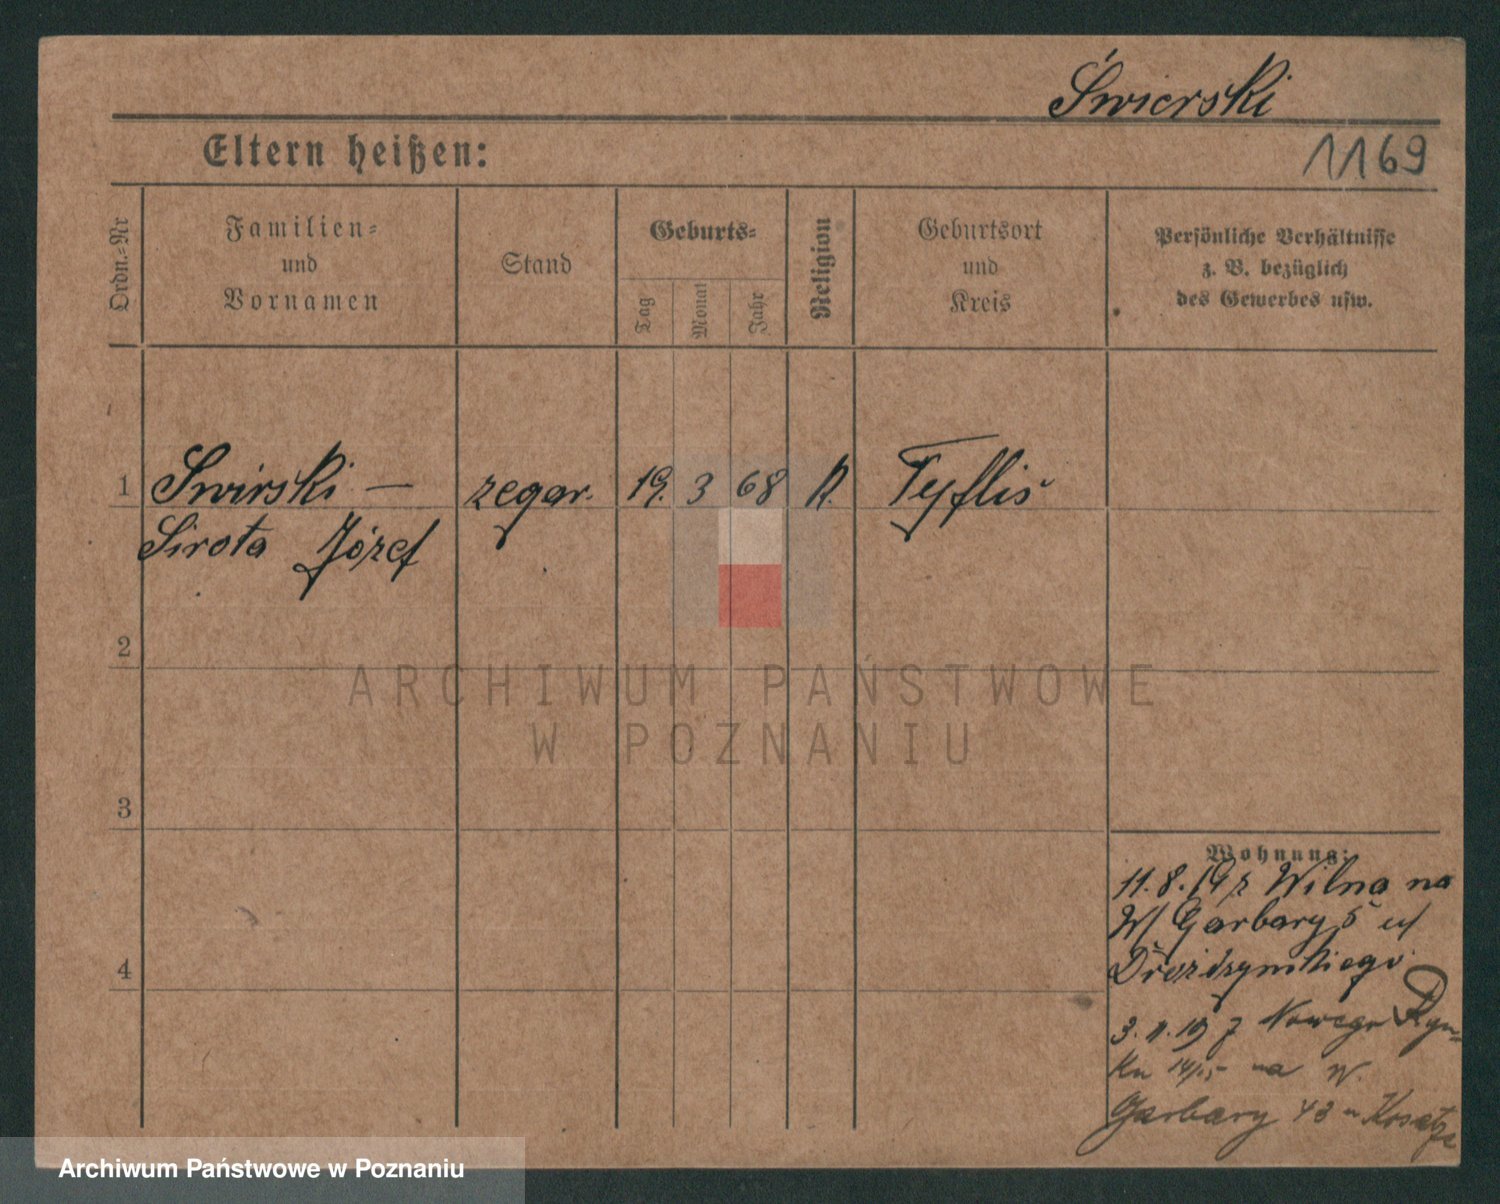 Świerski
Eltern heißen:
1169
Ordn.-Nr
Familien-
und
Vornamen
Stand
Geburts-
Tag
Monat
Jahr
Religion
Geburtsort
und
Kreis
Persönliche Verhältnisse
z. B. bezüglich
des Gewerbes usw.
1 Swirski — zegar. 19. 3 68 R. Tyflis
Sirota Józef
2
ARCHIWUM PAŃSTWOWE
W POZNANIU
3
Wohnung:
11.8.19 z Wilna na
W/ Garbary 5 u/
4
3.11.19 z Nowego Ryn-
ku 14/15 na W.
Garbary 43 u
Archiwum Państwowe w Poznaniu